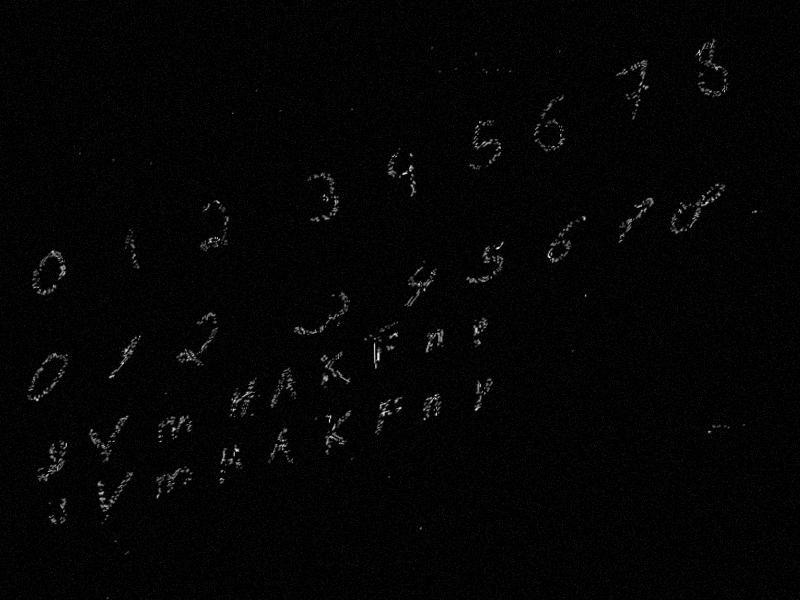 0 1 2 3 4 5 6 7 8
0 1 2 3 4 5 6 7 8
y m H A K F n p
y V m H A K F n p